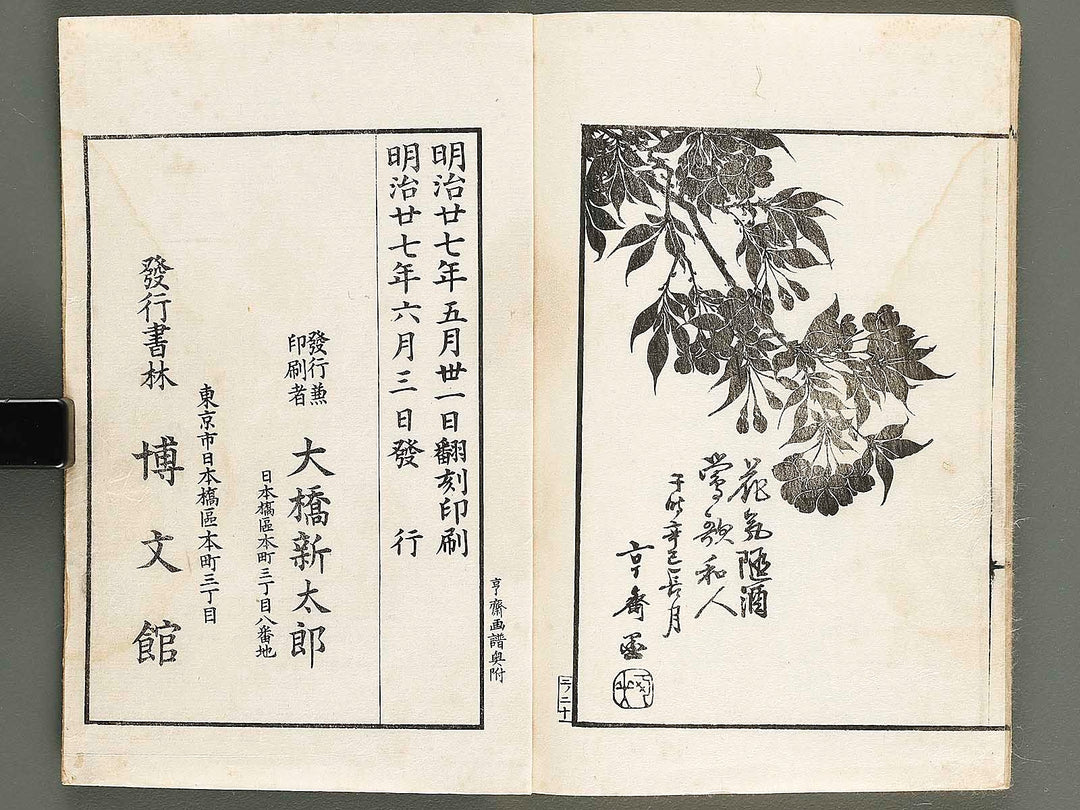 花気随酒
鶯歌和人
于時辛巳長月
亨齋画
三ノ二十
亨齋画譜奥附
明治廿七年五月卅一日翻刻印刷
明治廿七年六月三日發行
發行兼
印刷者
大橋新太郎
日本橋區本町三丁目八番地
東京市日本橋區本町三丁目
發行書林
博文館